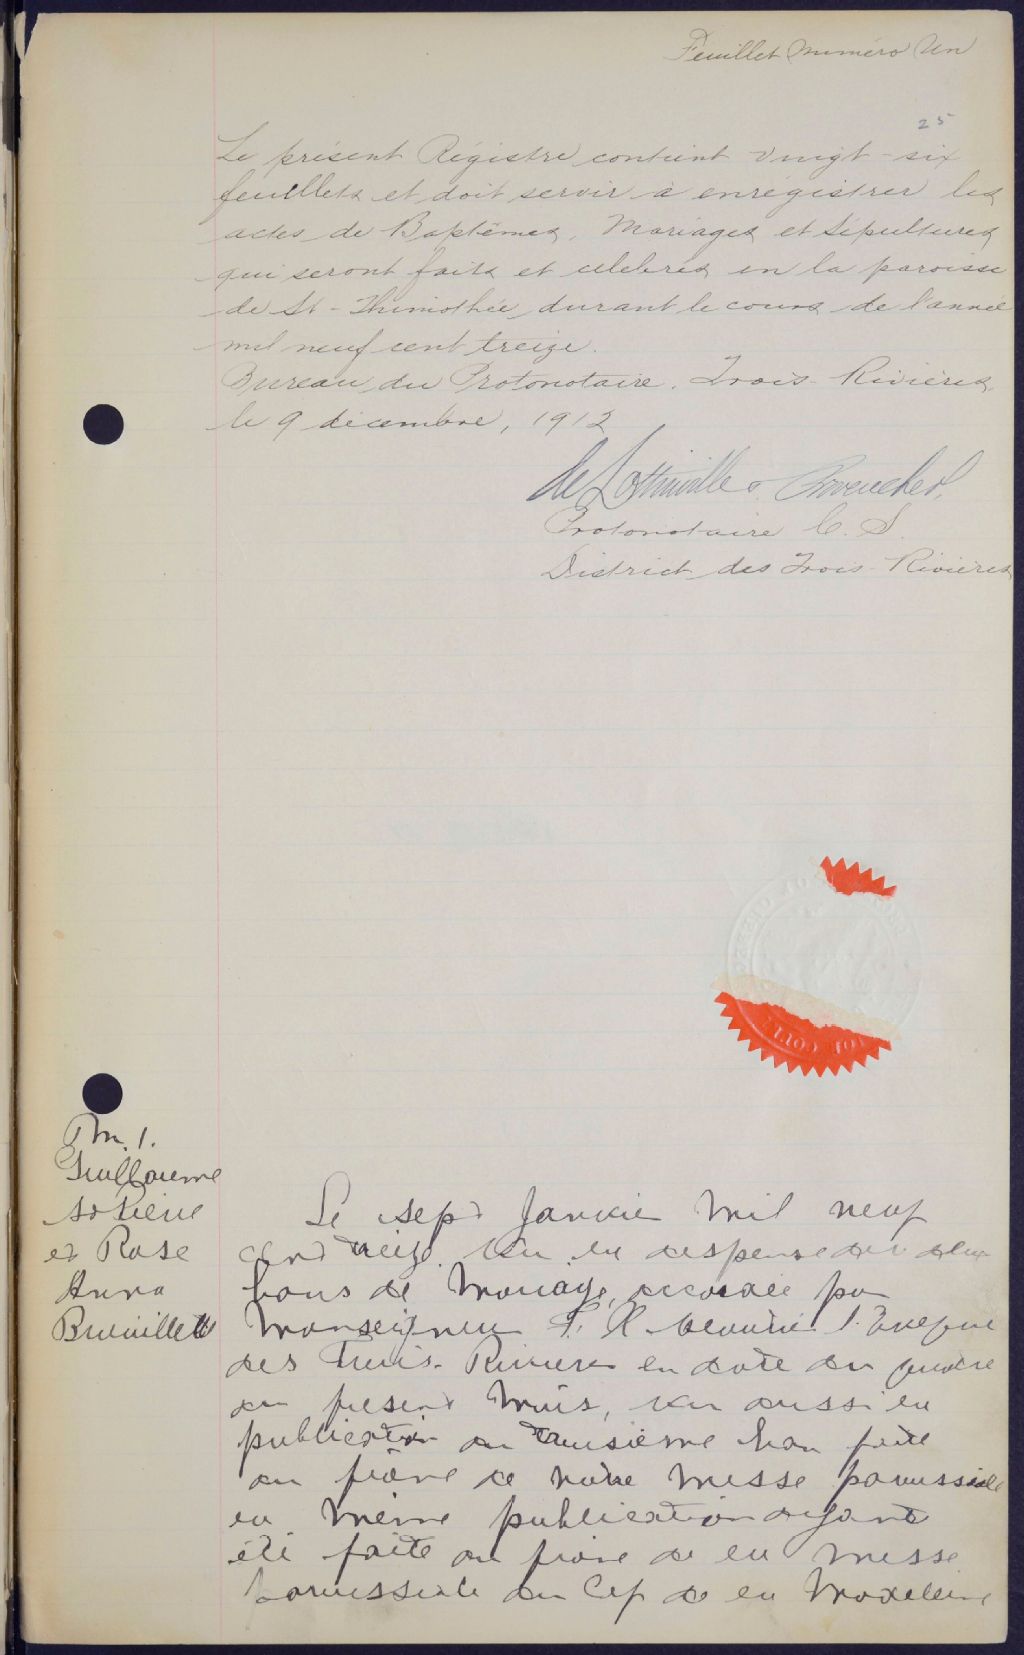 Feuillet Numéro Un
25
Le présent Régistre contient vingt-six
feuillets et doit servir à enrégistrer les
actes de Baptêmes, Mariages et Sépultures
qui seront faits et célébrés en la paroisse
de St-Thimothée durant le cours de l'année
mil neuf cent treize.
Bureau du Protonotaire. Trois-Rivières
le 9 décembre, 1912
de Lottinville & Provencher
Protonotaire C. S.
District des Trois-Rivières
M. 1.
Guillaume
St Pierre
et Rose
Anna
Brouillette
Le sept Janvier mil neuf
cent treize. Vu la dispense de deux
bans de Mariage, accordée par
Monseigneur F. X. Cloutier l'Evêque
des Trois-Rivières en date du quatre
du présent Mois, vu aussi la
publication du troisième ban faite
au prône de notre messe paroissiale
la même publication ayant
été faite au prône de la messe
paroissiale du Cap de la Madeleine